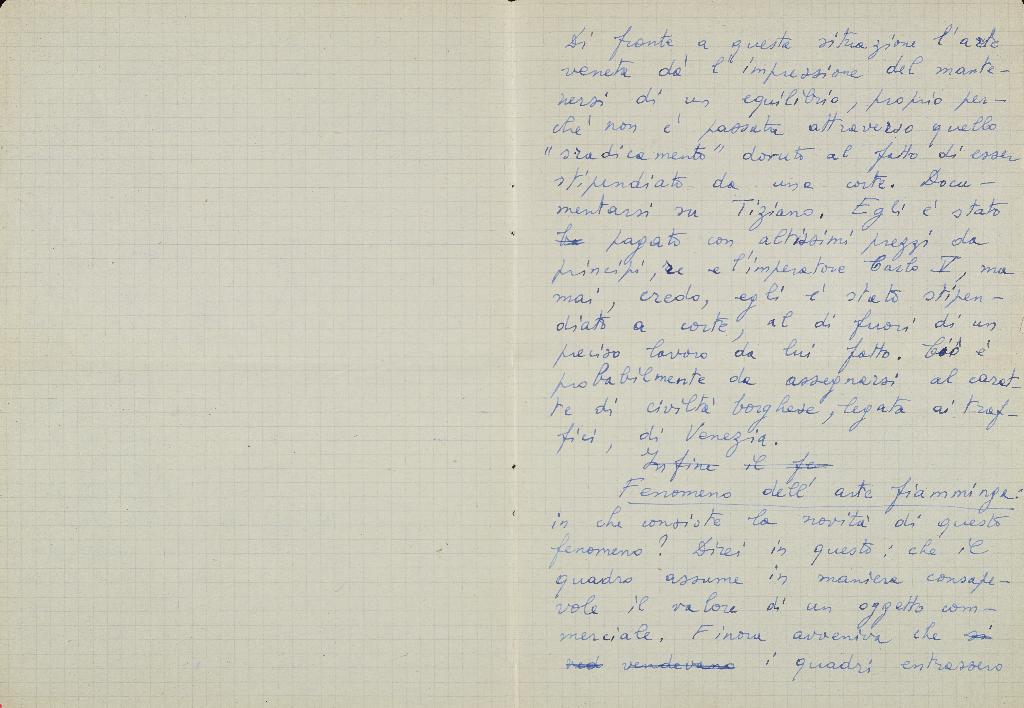 Di fronte a questa situazione l'arte
veneta dà l'impressione del mante-
nersi di un equilibrio, proprio per-
ché non è passata attraverso quello
"sradicamento" dovuto al fatto di esser
stipendiato da una corte. Docu-
mentarsi su Tiziano. Egli è stato
ha pagato con altissimi prezzi da
principi, re e l'imperatore Carlo V, ma
mai, credo, egli è stato stipen-
diato a corte, al di fuori di un
preciso lavoro da lui fatto. Ciò è
probabilmente da assegnarsi al carat-
te di civiltà borghese, legata ai traf-
fici, di Venezia.
Infine il fe
Fenomeno dell'arte fiamminga:
in che consiste la novità di questo
fenomeno? Direi in questo: che il
quadro assume in maniera consape-
vole il valore di un oggetto com-
merciale. Finora avveniva che si
vendevano i quadri entrassero